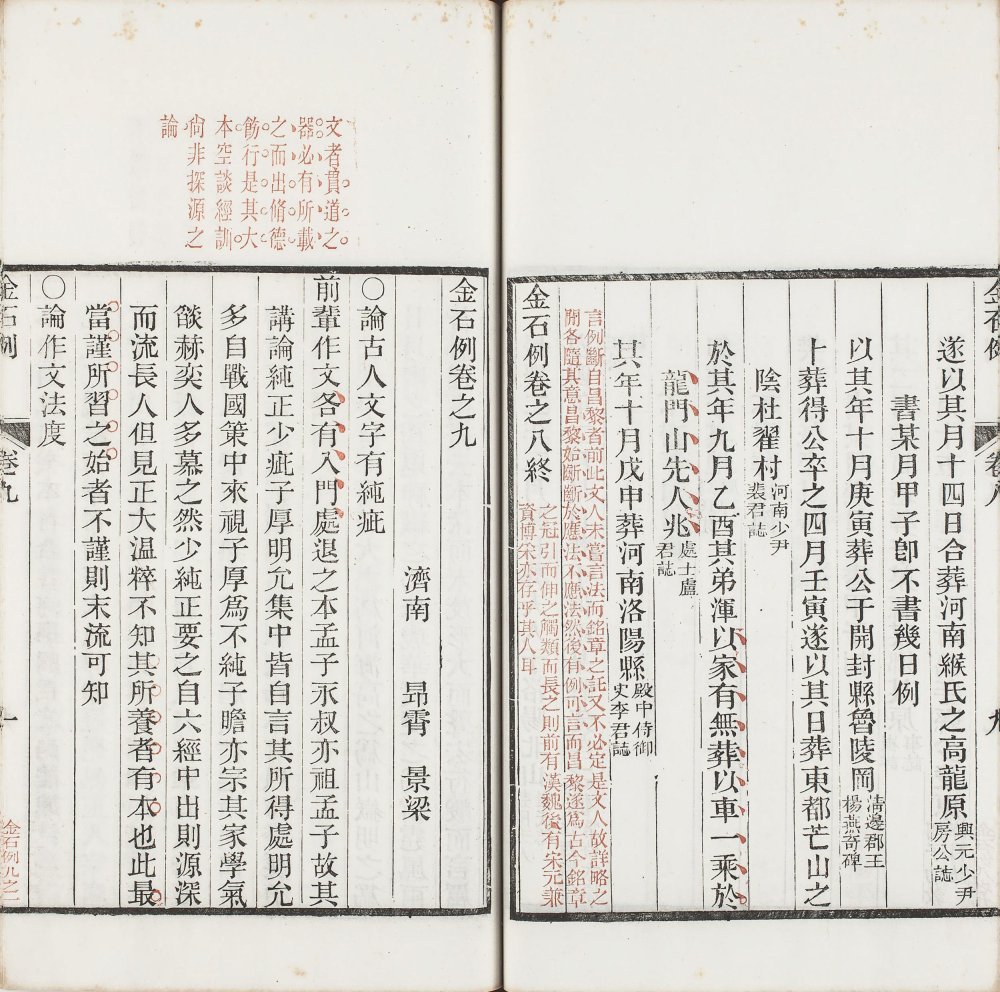 金石例 卷八 九
遂以其月十四日合葬河南緱氏之高龍原興元少尹房公誌
書某月甲子卽不書幾日例
以其年十月庚寅葬公于開封縣魯陵岡清邊郡王楊燕奇碑
十葬得公卒之四月壬寅遂以其日葬東都芒山之
陰杜翟村河南少尹裴君誌
於其年九月乙酉其弟渾以家有無葬以車一乘於
龍門山先人兆處士盧君誌
其年十月戊申葬河南洛陽縣殿中侍御史李君誌
言例斷自昌黎者前此文人未嘗言法而銘章之託又不必定是文人故詳略之
閒各隨其意昌黎始斷斷於應法不應法然後有例可言而昌黎遂爲古今銘章
之冠引而伸之觸類而長之則前有漢魏後有宋元兼
資博采亦存乎其人耳
金石例卷之八終
文者貫道之
器必有所載
之而出脩德
飭行是其大
本空談經訓
尙非探源之
論
金石例卷之九
濟南 昻霄 景梁
〇論古人文字有純疵
前輩作文各有入門處退之本孟子永叔亦祖孟子故其
講論純正少疵子厚明允集中皆自言其所得處明允
多自戰國策中來視子厚爲不純子瞻亦宗其家學氣
燄赫奕人多慕之然少純正要之自六經中出則源深
而流長人但見正大温粹不知其所養者有本也此最
當謹所習之始者不謹則末流可知
〇論作文法度
金石例 卷九 一
金石例九之一